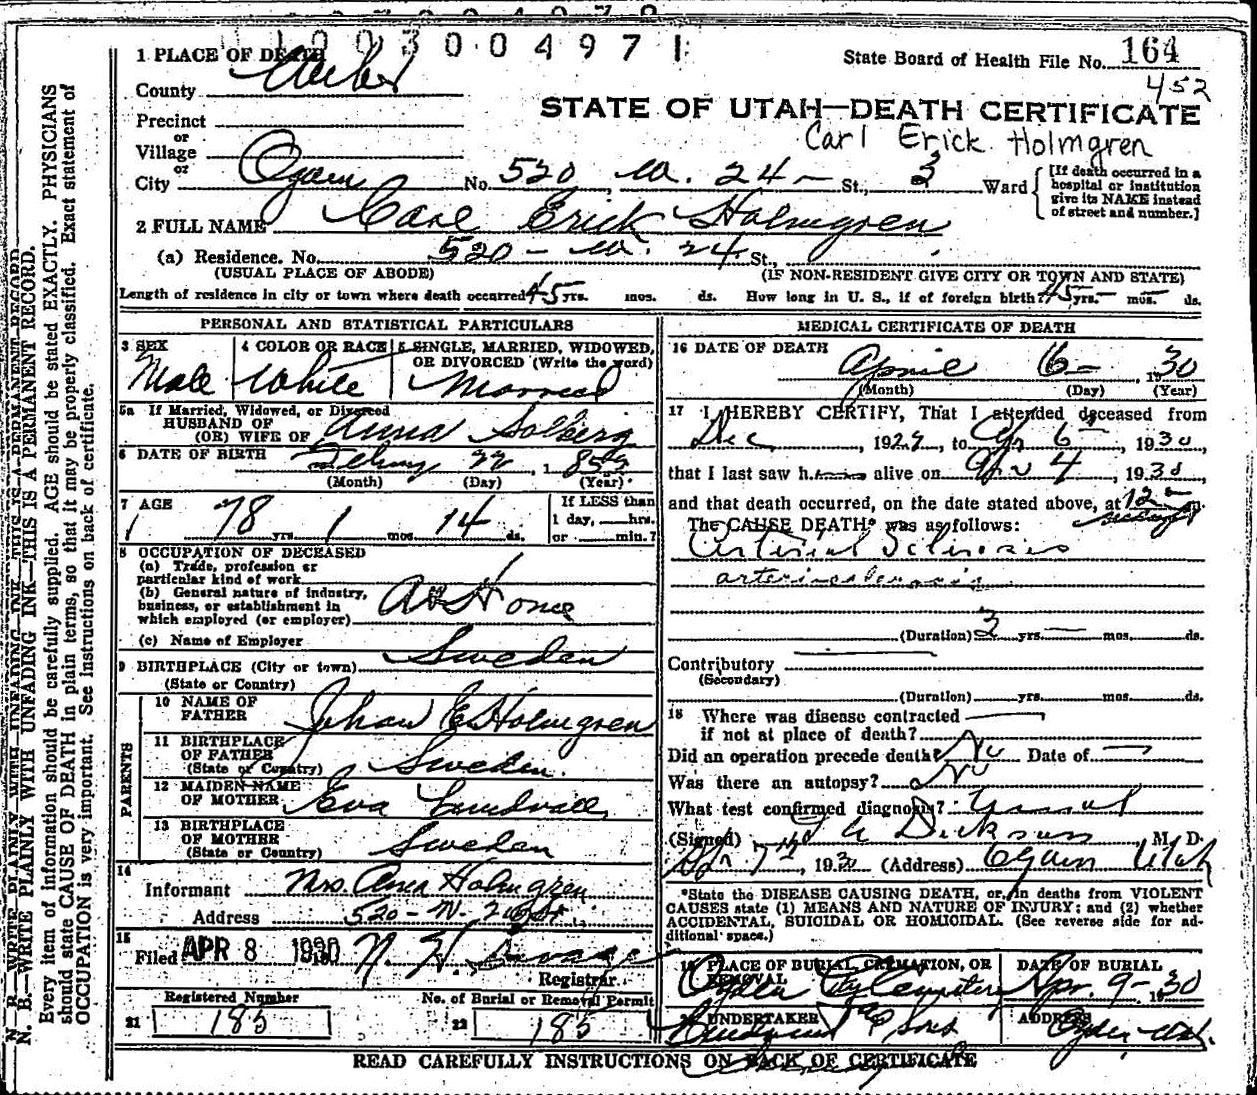 1003004971
1 PLACE OF DEATH
State Board of Health File No. 164
452
County Weber
STATE OF UTAH—DEATH CERTIFICATE
Carl Erick Holmgren
Precinct
or
Village
or
City Ogden No. 520 W. 24 St., 3 Ward
[If death occurred in a hospital or institution give its NAME instead of street and number.]
2 FULL NAME Carl Erick Holmgren
(a) Residence. No. 520 - W. 24 St.,
(USUAL PLACE OF ABODE) (IF NON-RESIDENT GIVE CITY OR TOWN AND STATE)
Length of residence in city or town where death occurred 45 yrs. mos. ds. How long in U. S., if of foreign birth? 45 yrs. — mos. — ds.
PERSONAL AND STATISTICAL PARTICULARS
3 SEX
Male
4 COLOR OR RACE
White
5 SINGLE, MARRIED, WIDOWED, OR DIVORCED (Write the word)
Married
5a If Married, Widowed, or Divorced
HUSBAND OF
(OR) WIFE OF Anna Solberg
6 DATE OF BIRTH 22, 185
(Month) (Day) (Year)
7 AGE
78 yrs. 1 mos. 14 ds.
If LESS than
1 day, hrs.
or min.?
8 OCCUPATION OF DECEASED
(a) Trade, profession or
particular kind of work
(b) General nature of industry,
business, or establishment in
which employed (or employer) At Home
(c) Name of Employer
9 BIRTHPLACE (City or town) Sweden
(State or Country)
PARENTS
10 NAME OF
FATHER Johan E Holmgren
11 BIRTHPLACE
OF FATHER
(State or Country) Sweden.
12 MAIDEN NAME
OF MOTHER Eva
13 BIRTHPLACE
OF MOTHER
(State or Country) Sweden
14
Informant Mrs. Anna Holmgren
Address 520 - W.
15
Filed APR 8 1930
Registrar.
Registered Number
21 185
No. of Burial or Removal Permit
22 185
MEDICAL CERTIFICATE OF DEATH
16 DATE OF DEATH
April 6 — , 1930
(Month) (Day) (Year)
17 I HEREBY CERTIFY, That I attended deceased from
Dec , 1929, to Apr 6 , 1930
that I last saw h alive on Apr 4 , 1930,
and that death occurred, on the date stated above, at 12 m.
The CAUSE DEATH* was as follows:
Arterial Sclerosis
arteriosclerosis
(Duration) 3 yrs. — mos. ds.
Contributory
(Secondary)
(Duration) yrs. mos. ds.
18 Where was disease contracted
if not at place of death?
Did an operation precede death? No Date of —
Was there an autopsy? No
What test confirmed diagnosis?
(Signed) Dickson M. D.
Apr 7th, 1930 (Address) Ogden Utah
*State the DISEASE CAUSING DEATH, or, in deaths from VIOLENT
CAUSES state (1) MEANS AND NATURE OF INJURY; and (2) whether
ACCIDENTAL, SUICIDAL OR HOMICIDAL. (See reverse side for ad-
ditional space.)
19 PLACE OF BURIAL, CREMATION, OR
REMOVAL
Ogden City Cemetery
DATE OF BURIAL
Apr. 9 - 1930
20 UNDERTAKER
& Sons
ADDRESS
Ogden, Utah.
READ CAREFULLY INSTRUCTIONS ON BACK OF CERTIFICATE
N. B.—WRITE PLAINLY WITH UNFADING INK—THIS IS A PERMANENT RECORD.
Every item of information should be carefully supplied. AGE should be stated EXACTLY. PHYSICIANS
should state CAUSE OF DEATH in plain terms, so that it may be properly classified. Exact statement of
OCCUPATION is very important. See instructions on back of certificate.